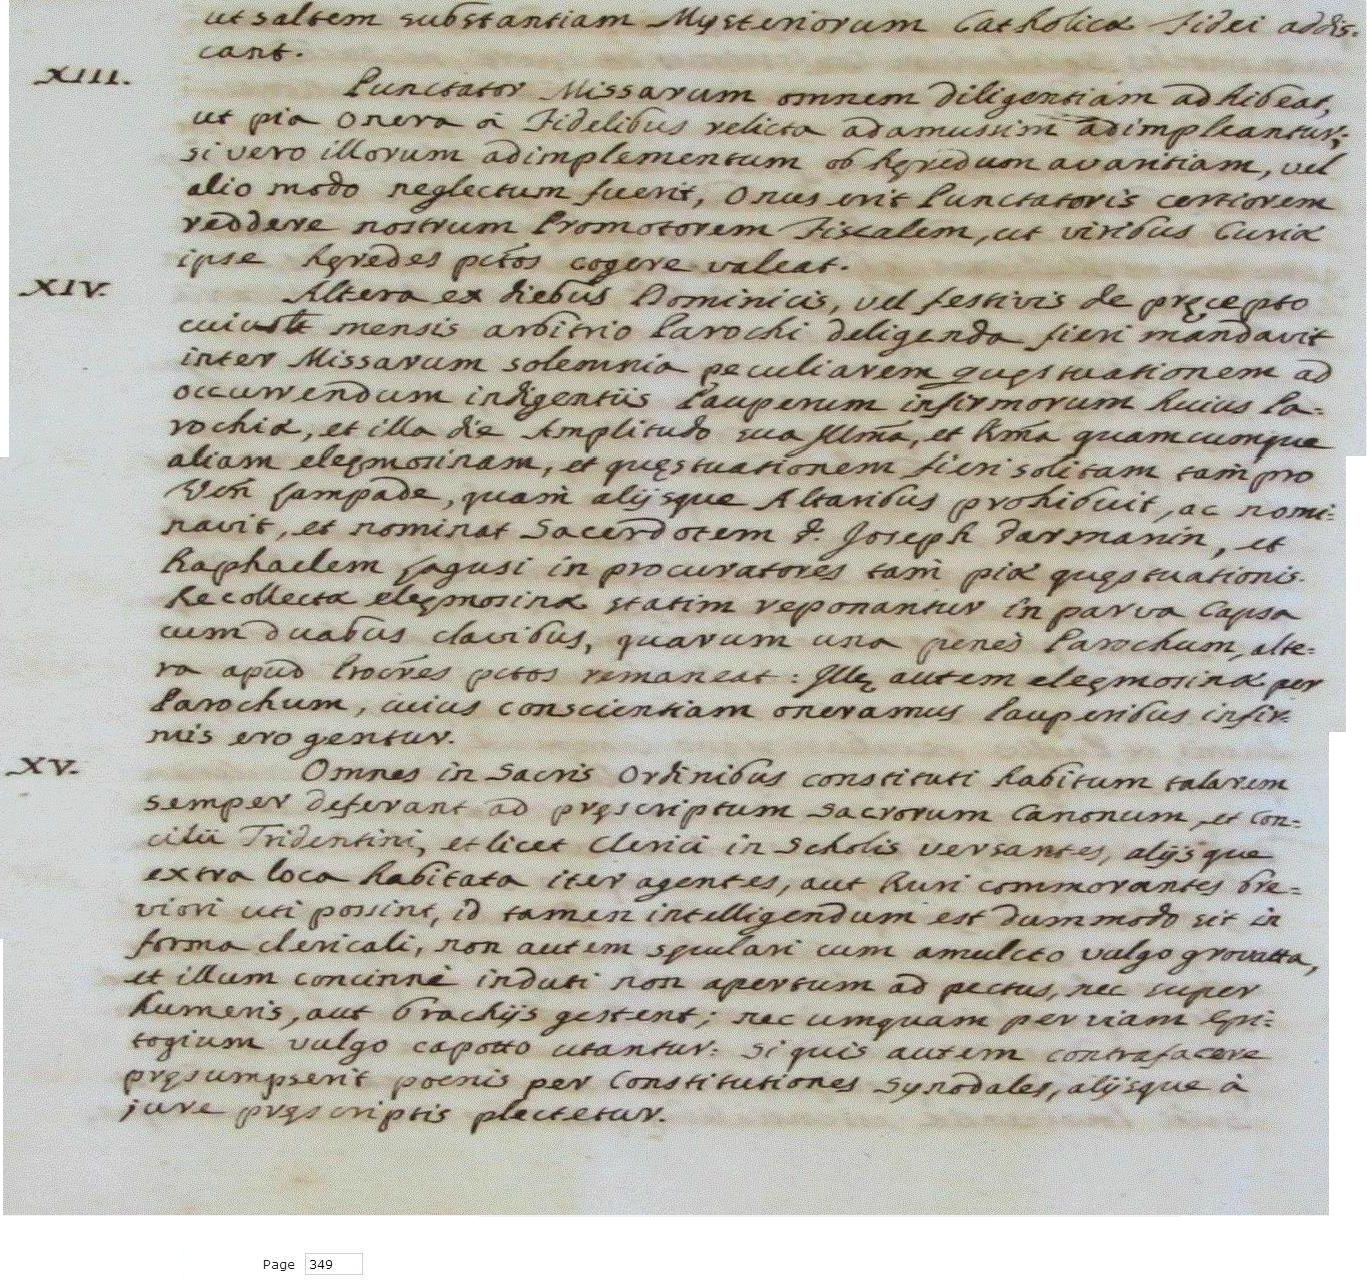 ut saltem substantiam Mysteriorum Catholicæ Fidei addis-
cant.
XIII.
Punctator Missarum omnem diligentiam adhibeat,
ut pia onera à Fidelibus relicta adamussim adimpleantur;
si vero illorum adimplementum ob hęredum avaritiam, vel
alio modo neglectum fuerit, Onus erit Punctatoris certiorem
reddere nostrum Promotorem Fiscalem, ut viribus Curiæ
ipse hęredes pctõs cogere valeat.
XIV.
Altera ex diebus Dominicis, vel festivis de pręcepto
mensis arbitrio Parochi deligenda fieri mandavit
inter Missarum solemnia peculiarem quęstuationem ad
occurrendum indigentiis Pauperum infirmorum huius Pa-
rochiæ, et illa die Amplitudo sua Illm̃a, et Rm̃a quamcumque
aliam elęmosinam, et quęstuationem fieri solitam tam̃ pro
Veñ Lampade, quam̃ alijsque Altaribus prohibuit, ac nomi-
navit, et nominat Sacerdotem D. Joseph Darmanin, et
Raphaelem Jagusi in procuratores tam̃ piæ quęstuationis.
Recollectæ elęmosinæ statim reponantur in parva Capsa
cum duabus clavibus, quarum una penes Parochum, alte-
ra apud Procr̃es pctos remaneat: Illę autem elęmosinæ per
Parochum, cuius conscientiam oneramus Pauperibus infir-
mis erogentur.
XV.
Omnes in Sacris Ordinibus constituti habitum talarem
semper deferant ad pręscriptum Sacrorum Canonum, et Con-
cilii Tridentini, et licet Clerici in Scholis versantes, alijsque
extra loca habitata iter agentes, aut Ruri commorantes bre-
viori uti possint, id tamen intelligendum est dummodo sit in
forma clericali, non autem sęculari cum amulcto vulgo grovatta,
et illum concinnè induti non apertum ad pectus, nec super
humeris, aut brachijs gestent; nec umquam per viam Epi-
togium vulgo capotto utantur: Si quis autem contrafacere
pręsumpserit poenis per Constitutiones Synodales, alijsque à
jure pręscriptis plectetur.
Page 349